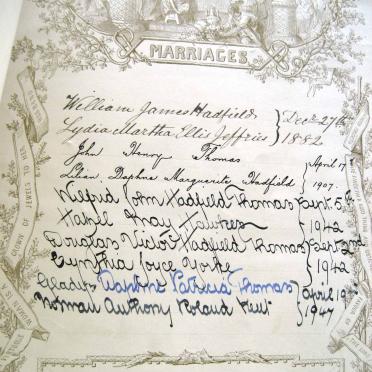 MARRIAGES.
William James Hadfield } Dec. 27th
Lydia Martha Ellis Jeffries } 1882
John Henry Thomas } April 17th
Lilian Daphne Marguerite Hadfield } 1907.
Wilfrid John Hadfield Thomas } Sept. 5th
Hazel May Hawkes } 1942
Douglas Victor Hadfield Thomas } Sept. 2nd
Cynthia Joyce Yorke } 1942
Gladys Daphne Patricia Thomas } April
Norman Anthony Roland } 1947
CROWN OF JEWELS TO HER
WOMAN IS A